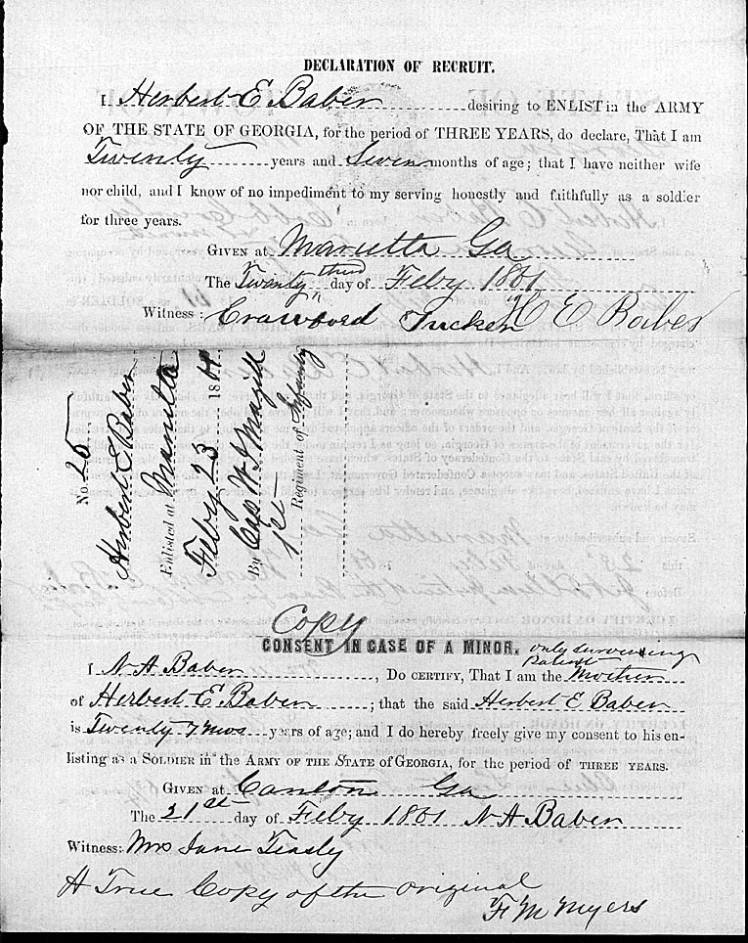 DECLARATION OF RECRUIT.
I Herbert E Baber desiring to ENLIST in the ARMY
OF THE STATE OF GEORGIA, for the period of THREE YEARS, do declare, That I am
Twenty years and Seven months of age; that I have neither wife
nor child, and I know of no impediment to my serving honestly and faithfully as a soldier
for three years.
GIVEN at Marietta Ga
The Twenty third day of Feby 1861
Witness: Crawford Tucker H E Baber
No. 25
Herbert E Baber
Enlisted at Marietta
Feby 23 1861
By Cap W J Magill
1st Regiment of Infantry
Copy
CONSENT IN CASE OF A MINOR.
only surviving
Parent
I N A Baber, DO CERTIFY, That I am the Mother
of Herbert E Baber; that the said Herbert E Baber
is Twenty 7 mos years of age; and I do hereby freely give my consent to his en-
listing as a SOLDIER in the ARMY OF THE STATE OF GEORGIA, for the period of THREE YEARS.
GIVEN at Canton Ga
The 21st day of Feby 1861 N A Baber
Witness: Mrs Jane Teasly
A True Copy of the original
F M Myers